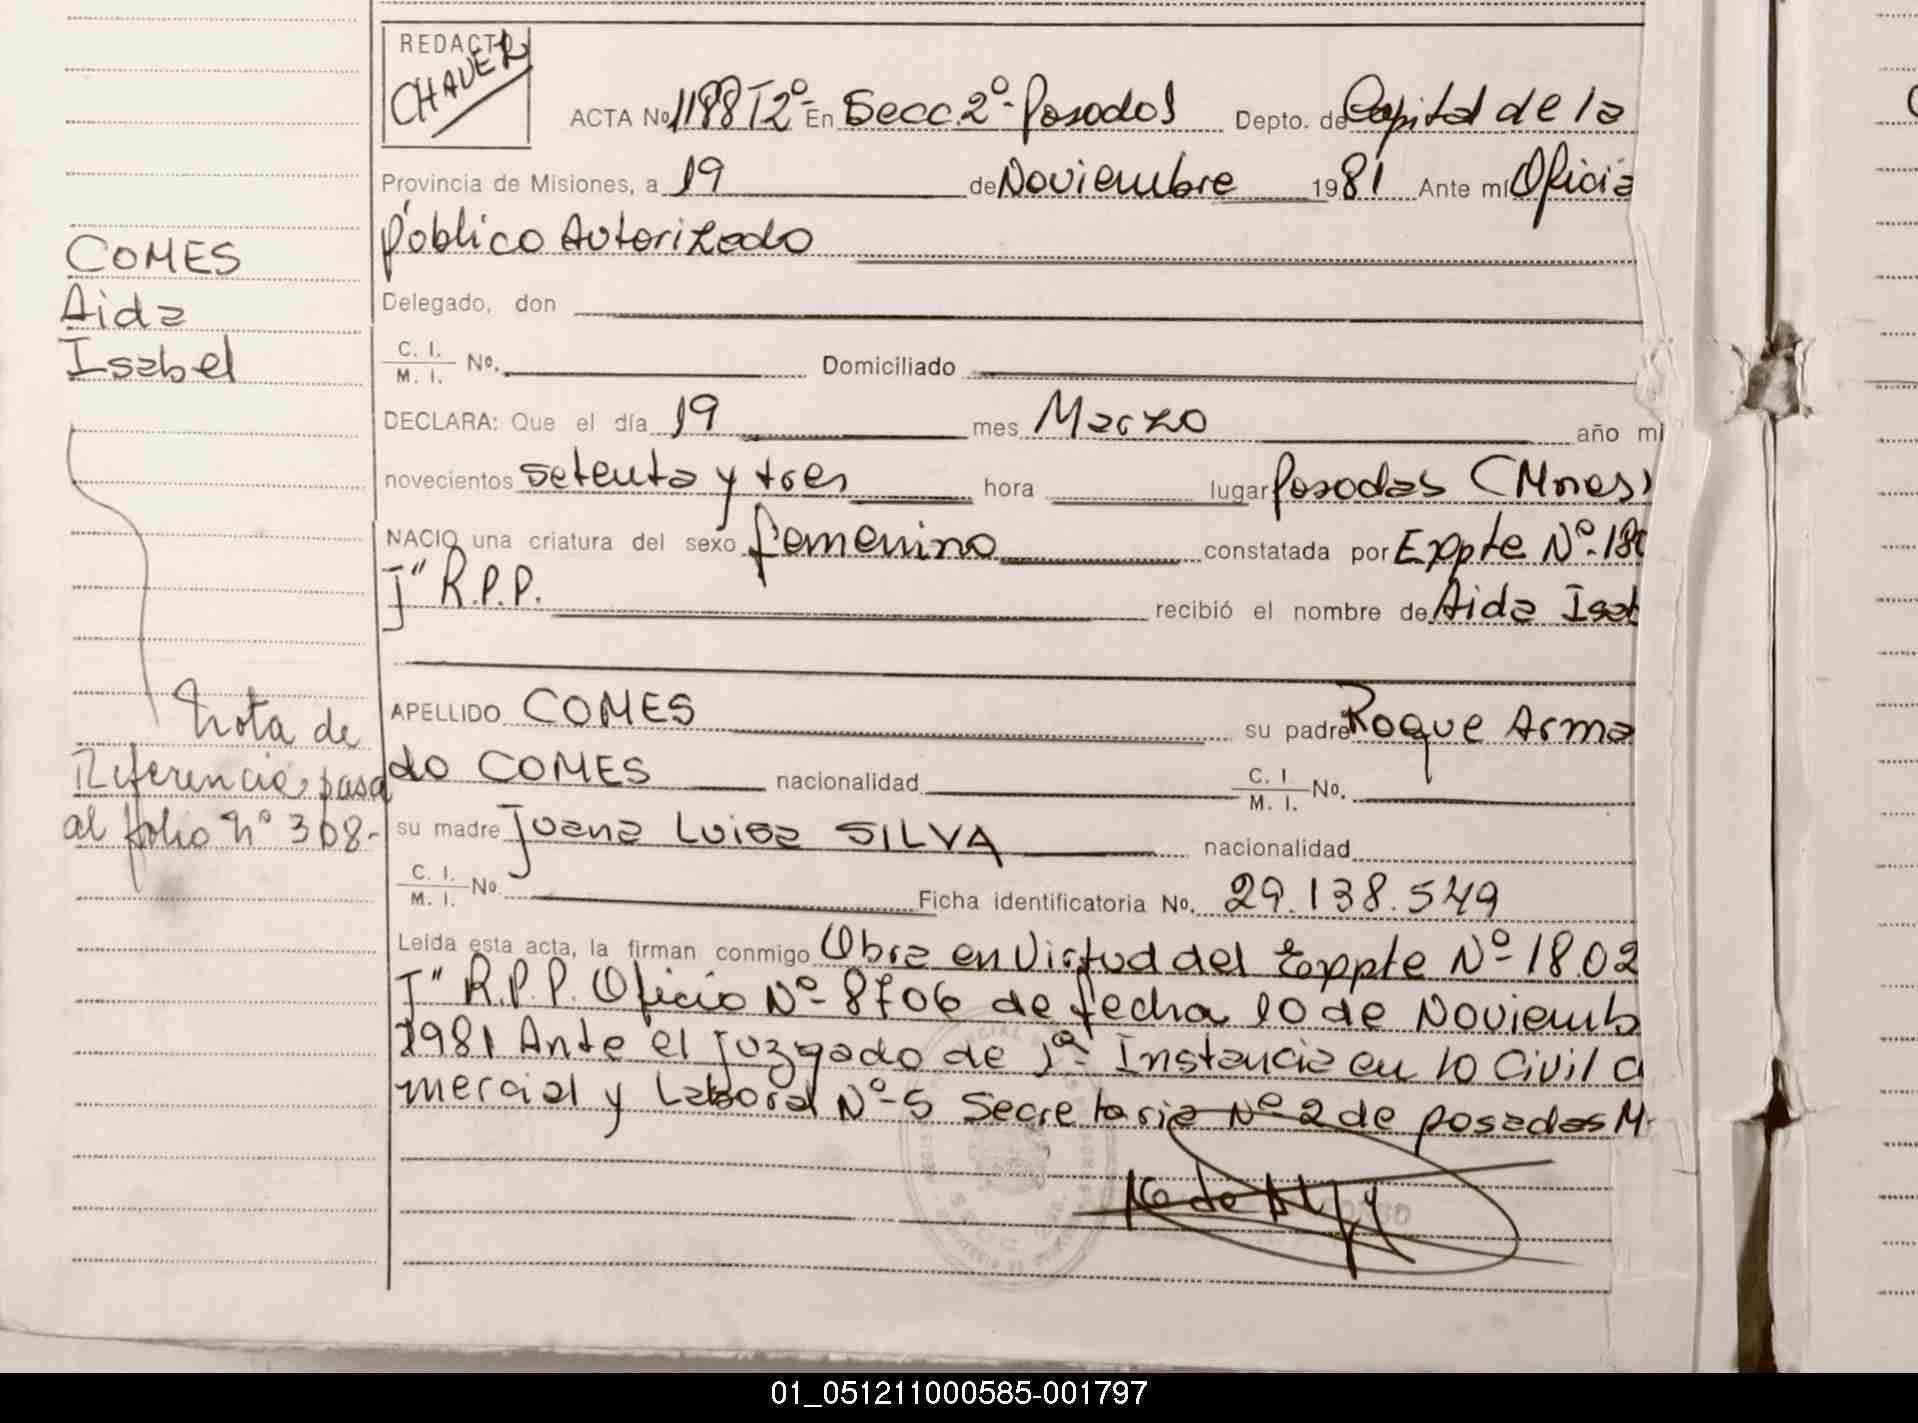 REDACTO
CHAVER
ACTA No 1188 T2º En Secc. 2º - Posadas Depto. de Capital de la
Provincia de Misiones, a 19 de Noviembre 1981 Ante mí Oficia
Público Autorizado
Delegado, don
C. I. / M. I. No. Domiciliado
DECLARA: Que el día 19 mes Marzo año mi
novecientos setenta y tres hora lugar Posadas (Mnes)
NACIO una criatura del sexo femenino constatada por Exppte Nº-180
J" R.P.P. recibió el nombre de Aida Isab
APELLIDO COMES su padre Roque Arma
do COMES nacionalidad C. I / M. I. No.
su madre Juana Luisa SILVA nacionalidad
C. I. / M. I. No. Ficha identificatoria No. 29.138.549
Leída esta acta, la firman conmigo Obra en Virtud del Exppte Nº-1802
J" R.P.P. Oficio Nº-8706 de fecha 10 de Noviemb
1981 Ante el Juzgado de 1ª Instancia en lo Civil C
mercial y Laboral Nº-5 Secretaria Nº-2 de posadas M.
COMES
Aida
Isabel
Nota de
Referencia pasa
al folio Nº 308-
01_051211000585-001797